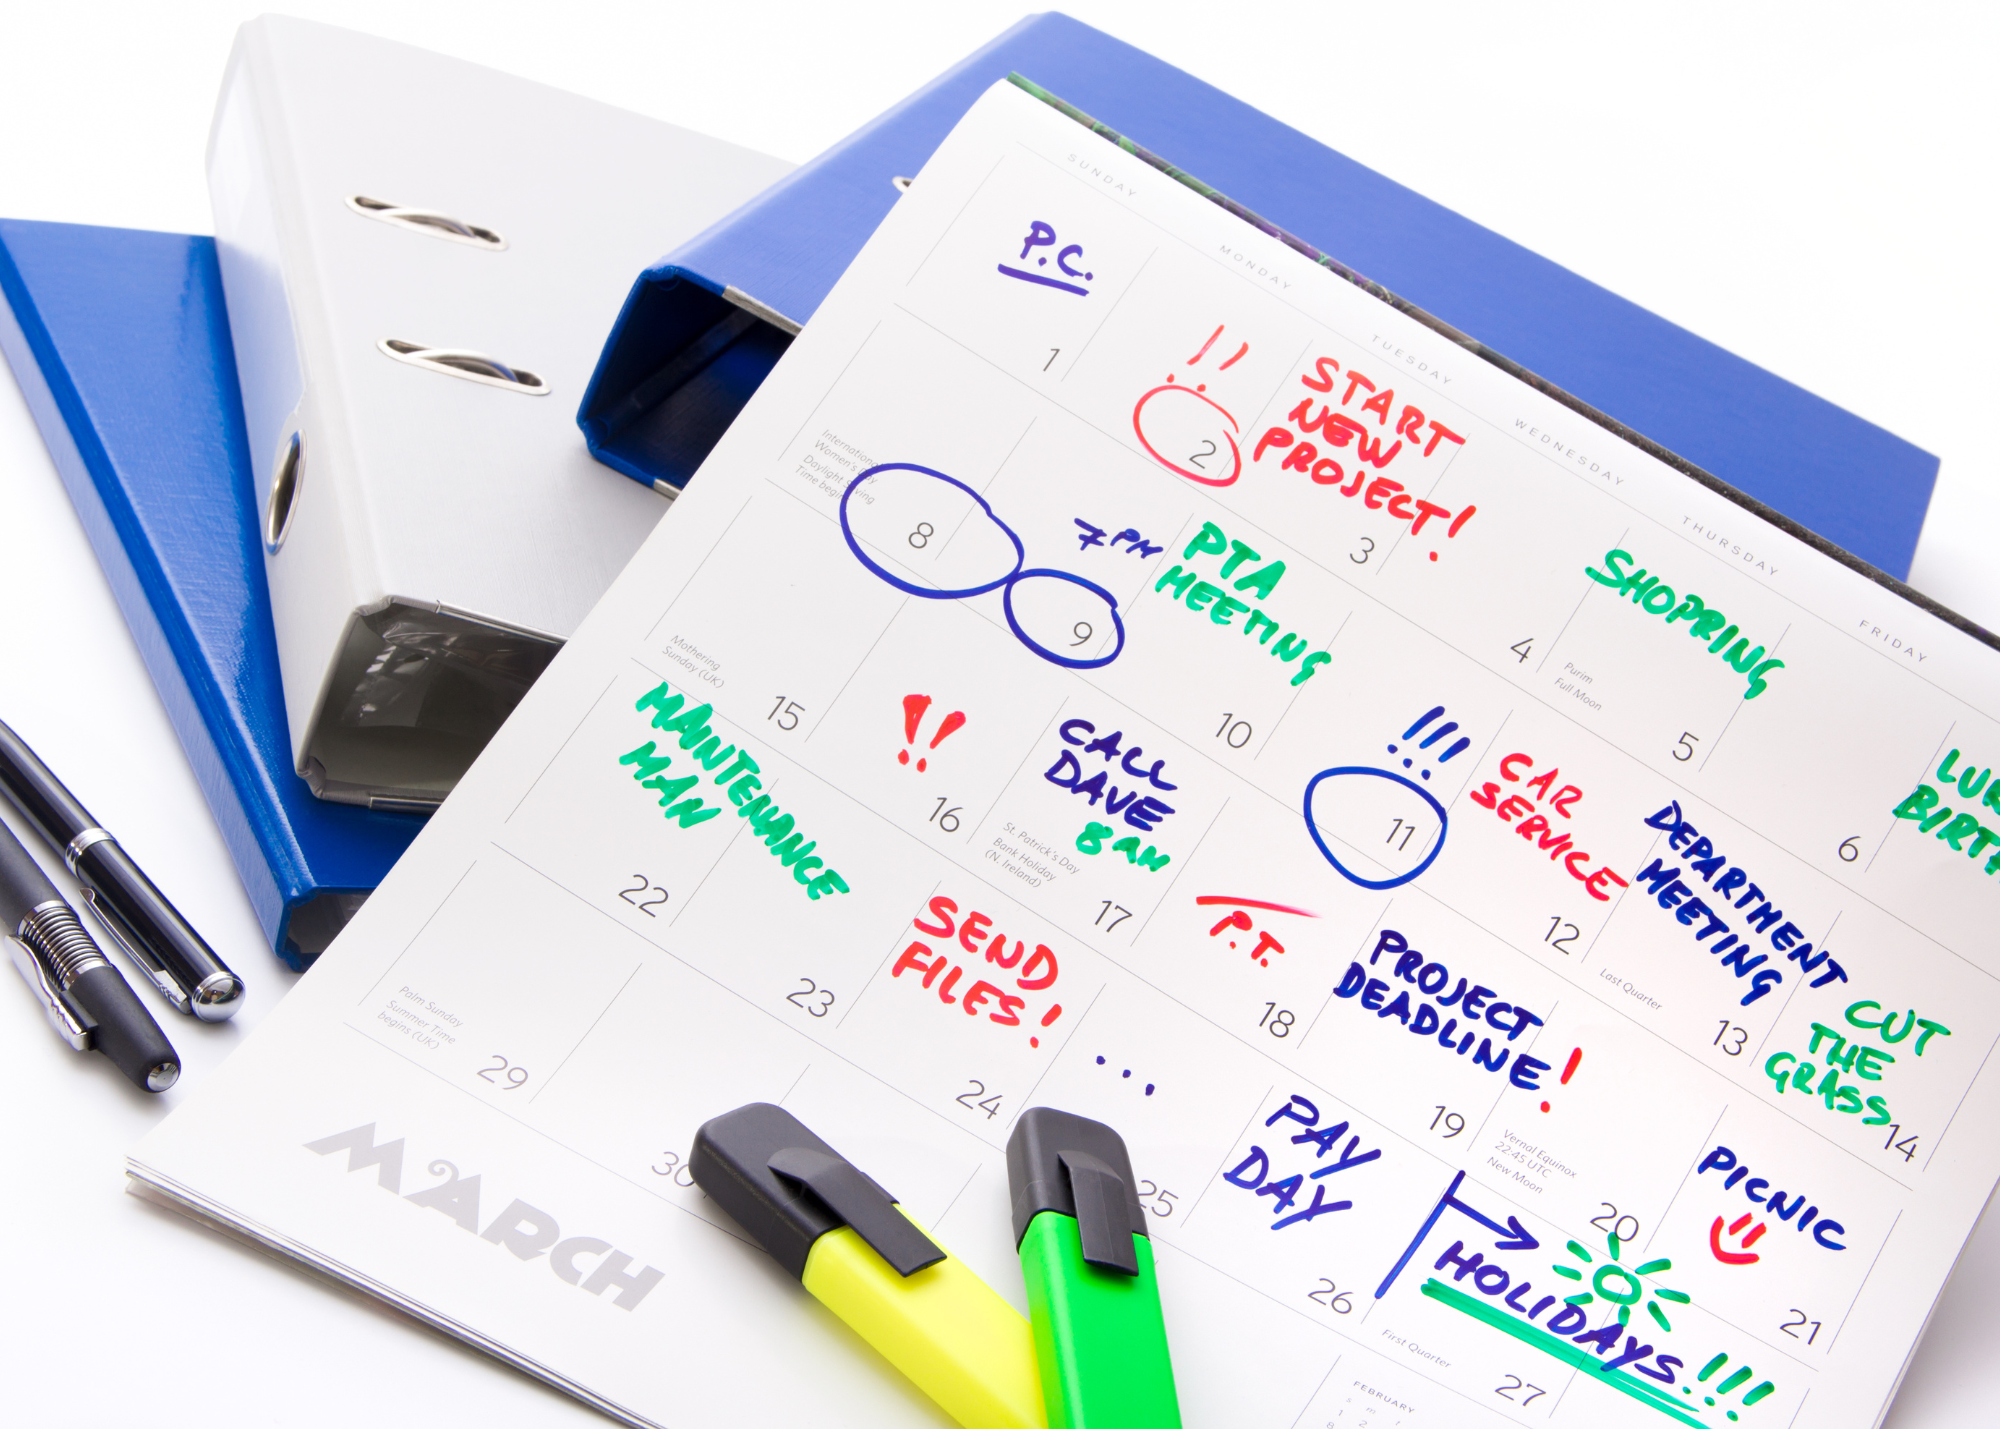 SUNDAY
MONDAY
TUESDAY
WEDNESDAY
THURSDAY
FRIDAY
P.C.
1
!!
2
START
NEW
PROJECT!
3
4
SHOPPING
Purim
Full Moon
5
6
BIRTH
Women's Day
Daylight Saving
Time begins
8
9
7 PM
PTA
MEETING
10
!!!
11
CAR
SERVICE
12
DEPARTMENT
MEETING
Last Quarter
13
CUT
THE
GRASS
14
Mothering
Sunday (UK)
15
!!
16
CALL
DAVE
8 AM
St. Patrick's Day
Bank Holiday
(N. Ireland)
17
P.T.
18
PROJECT
DEADLINE!
19
Vernal Equinox
22:45 UTC
New Moon
20
PICNIC
21
MAINTENANCE
MAN
22
23
SEND
FILES!
24
...
25
PAY
DAY
26
First Quarter
27
HOLIDAYS!!!
Palm Sunday
Summer Time
begins (UK)
29
30
MARCH
FEBRUARY